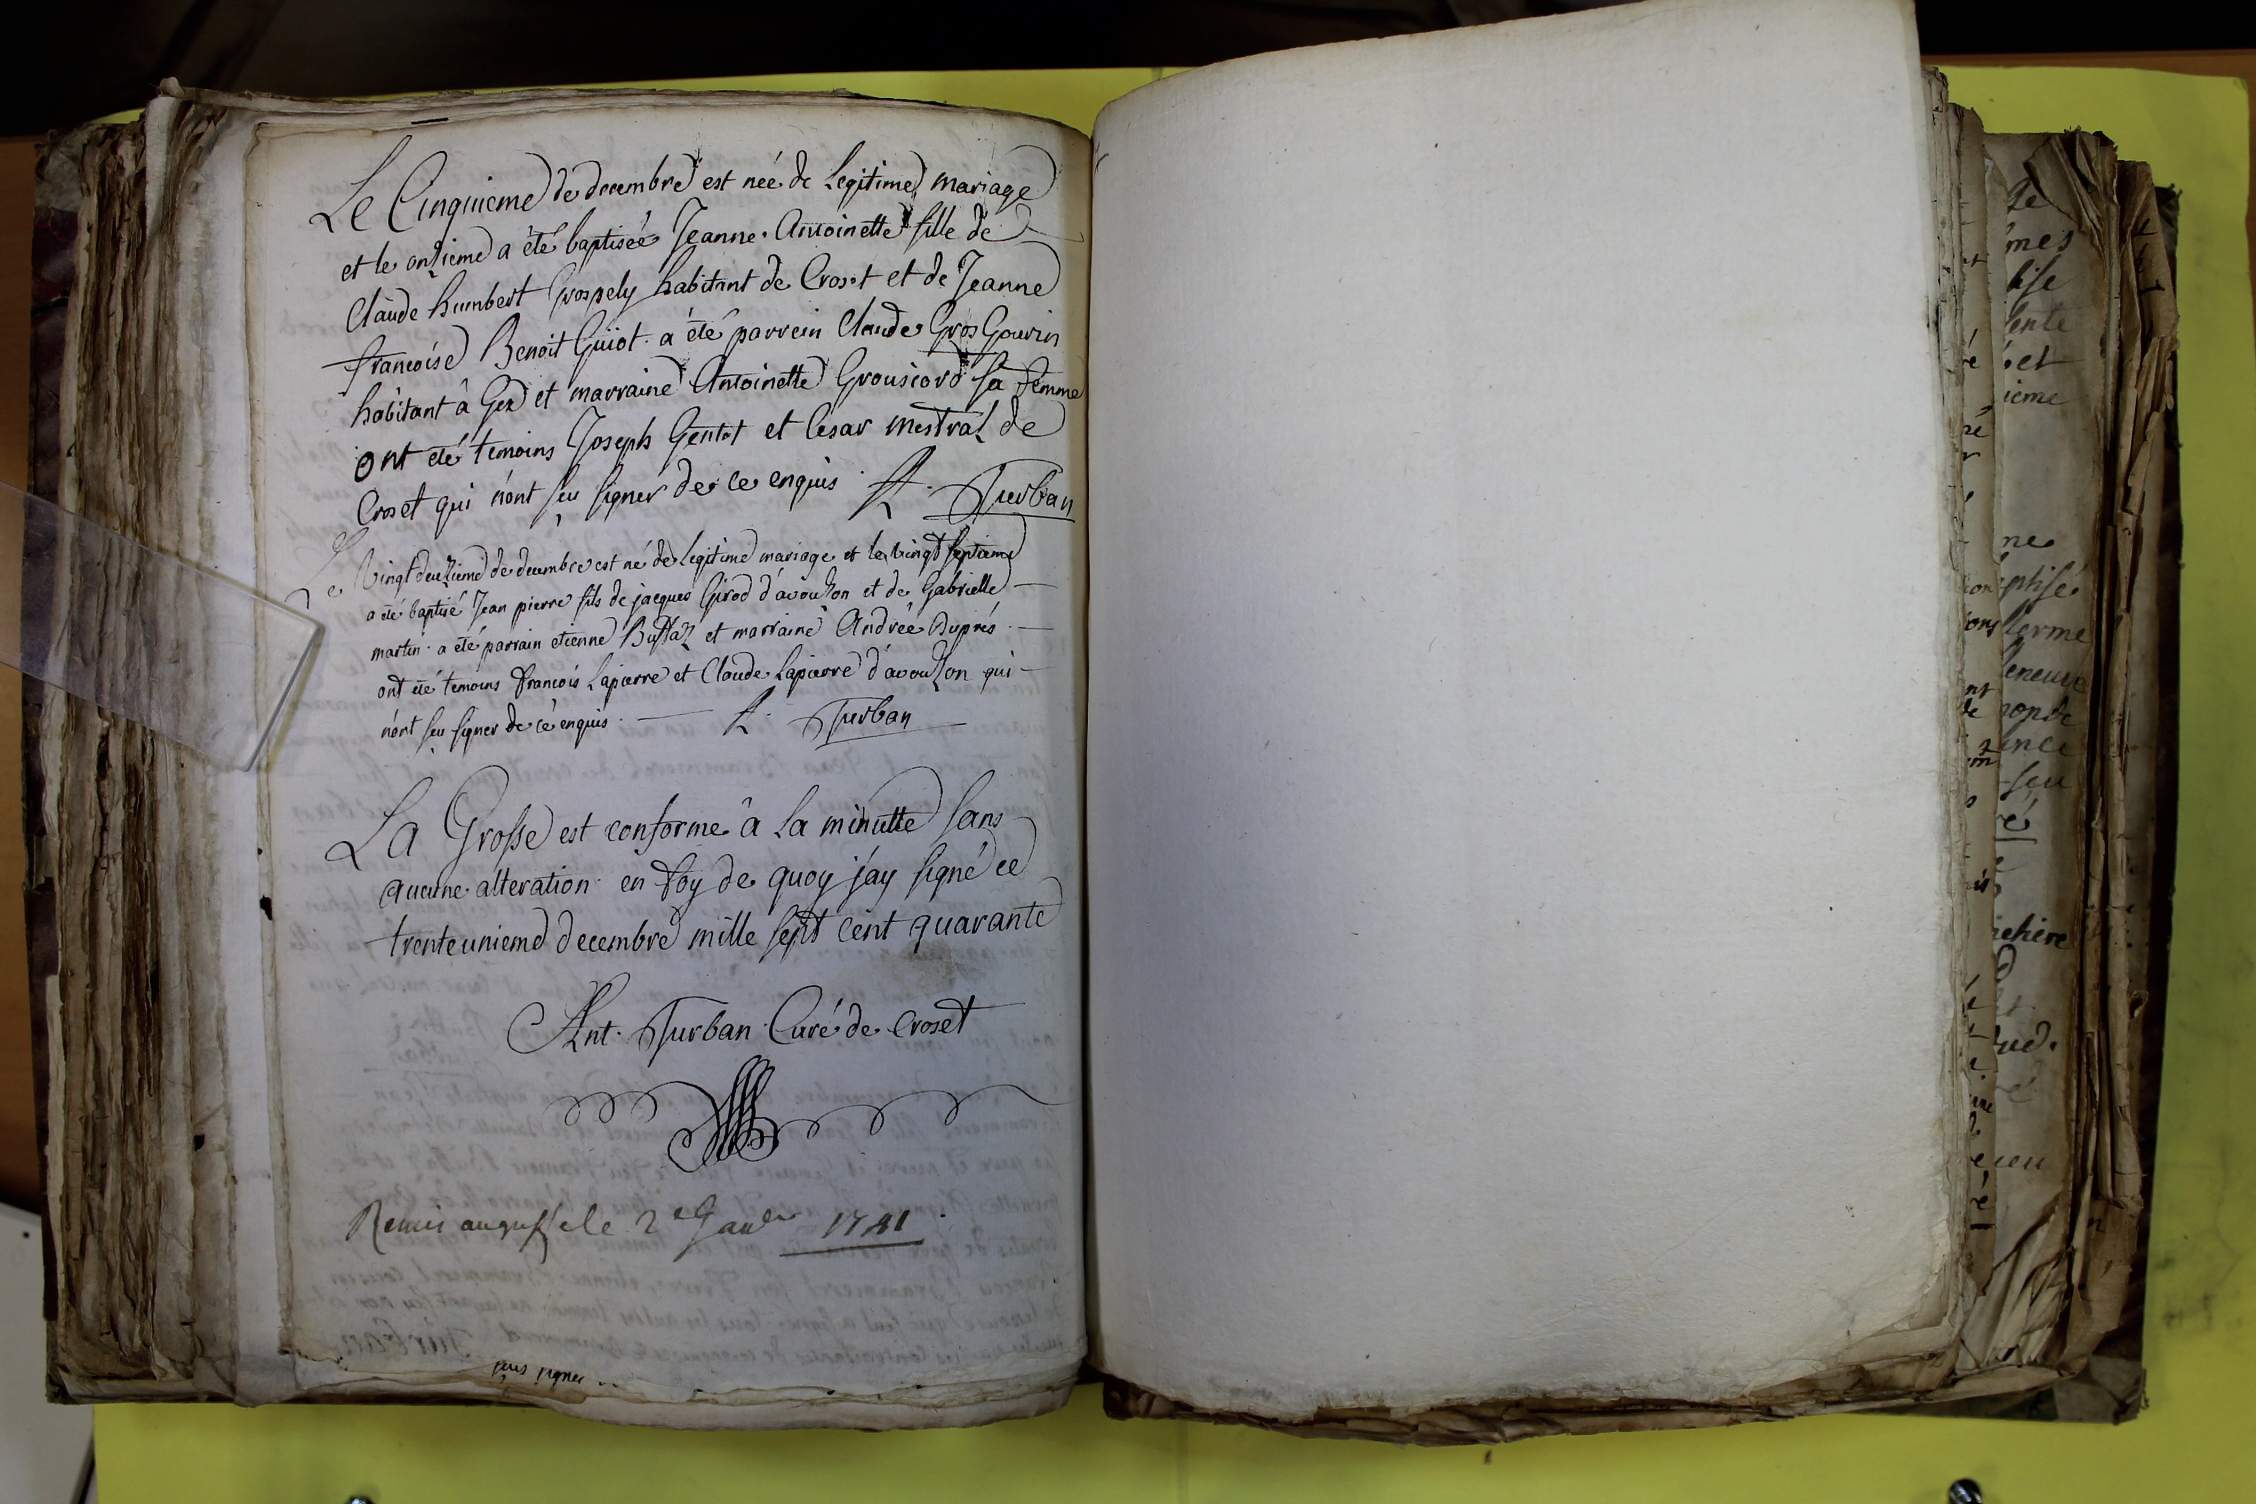 Le Cinquieme de decembre est neé de Legitime mariage
et le onzieme a été baptiseé Jeanne Antoinette fille de
Claude humbert Grospely habitant de Croset et de Jeanne
francoise Benoit Guiot a été parrein Claude Gros Gourin
habitant à Gex et marraine Antoinette Grousicord sa femme
ont été temoins Joseph Gentet et Cesar mestral de
Croset qui n'ont seu signer de ce enquis. A. Turban
Le vingt deuzieme de decembre est né de legitime mariage et le vingt septieme
a été baptisé Jean pierre fils de jacques Girod d'avouzon et de Gabrielle
martin a été parrain etienne Buffaz et marraine Andreé Duprés
ont été temoins francois Lapierre et Claude Lapierre d'avouzon qui
n'ont seu signer de ce enquis. A. Turban
La Grosse est conforme â La minutte sans
aucune alteration en foy de quoy j'ay signé ce
trenteunieme decembre mille sept cent quarante
Ant. Turban Curé de Croset
Remis au greffe le 2e Janv 1741
signer